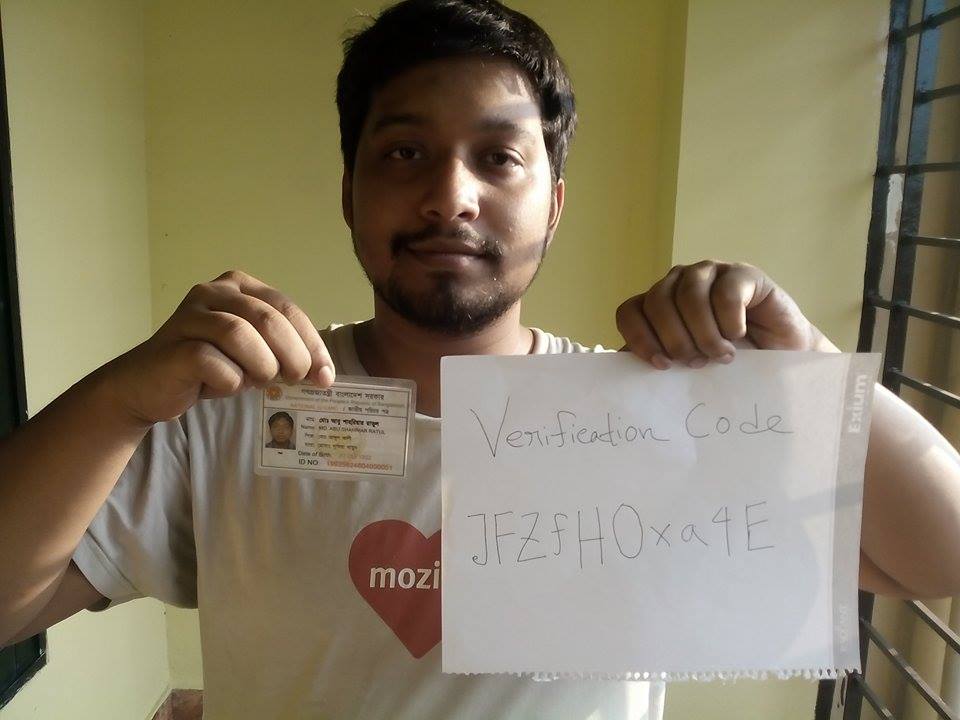 গণপ্রজাতন্ত্রী বাংলাদেশ সরকার
Government of the People's Republic of Bangladesh
NATIONAL ID CARD / জাতীয় পরিচয় পত্র
নাম: মোঃ আবু শাহরিয়ার রাতুল
Name: MD. ABU SHAHRIAR RATUL
পিতা:
মাতা:
Date of Birth:
ID NO:
mozi
Verification Code
JFZfHOxa4E
Exium